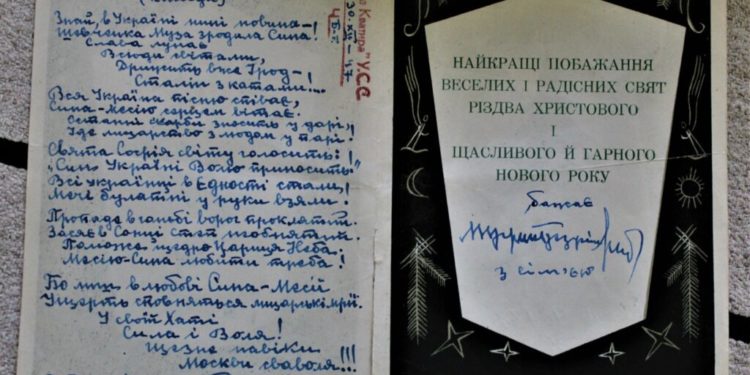 Знай, в Україні нині новина—!
Шевченка Муза зродила Сина!
Слава лунає
Всюди світами,
Дрижить вже Ірод—
Сталін з катами...!
Вся Україна пісню співає,
Сина-Месію серцем вітає.
Останні скарби зносить у дарі,
Де лицарство з модом у парі.
Свята Софія світу голосить:
"Син Україні Волю приносить"!
Всі українці в Єдності стали,
Мечі булатні у руки взяли!
Пропаде в ганьбі ворог проклятий.
Засяє в Сонці степ
Поможе щедро Цариця Неба—
Месію-Сина любити треба!
Бо лиш в любові Сина-Месії
Ущерть сповняться лицарські мрії.
У своїй Хаті
Сила і Воля!
Щезне навіки
Москви сваволя...!!!
УСС
НАЙКРАЩІ ПОБАЖАННЯ
ВЕСЕЛИХ І РАДІСНИХ СВЯТ
РІЗДВА ХРИСТОВОГО
І
ЩАСЛИВОГО Й ГАРНОГО
НОВОГО РОКУ
бажає
з сім'єю